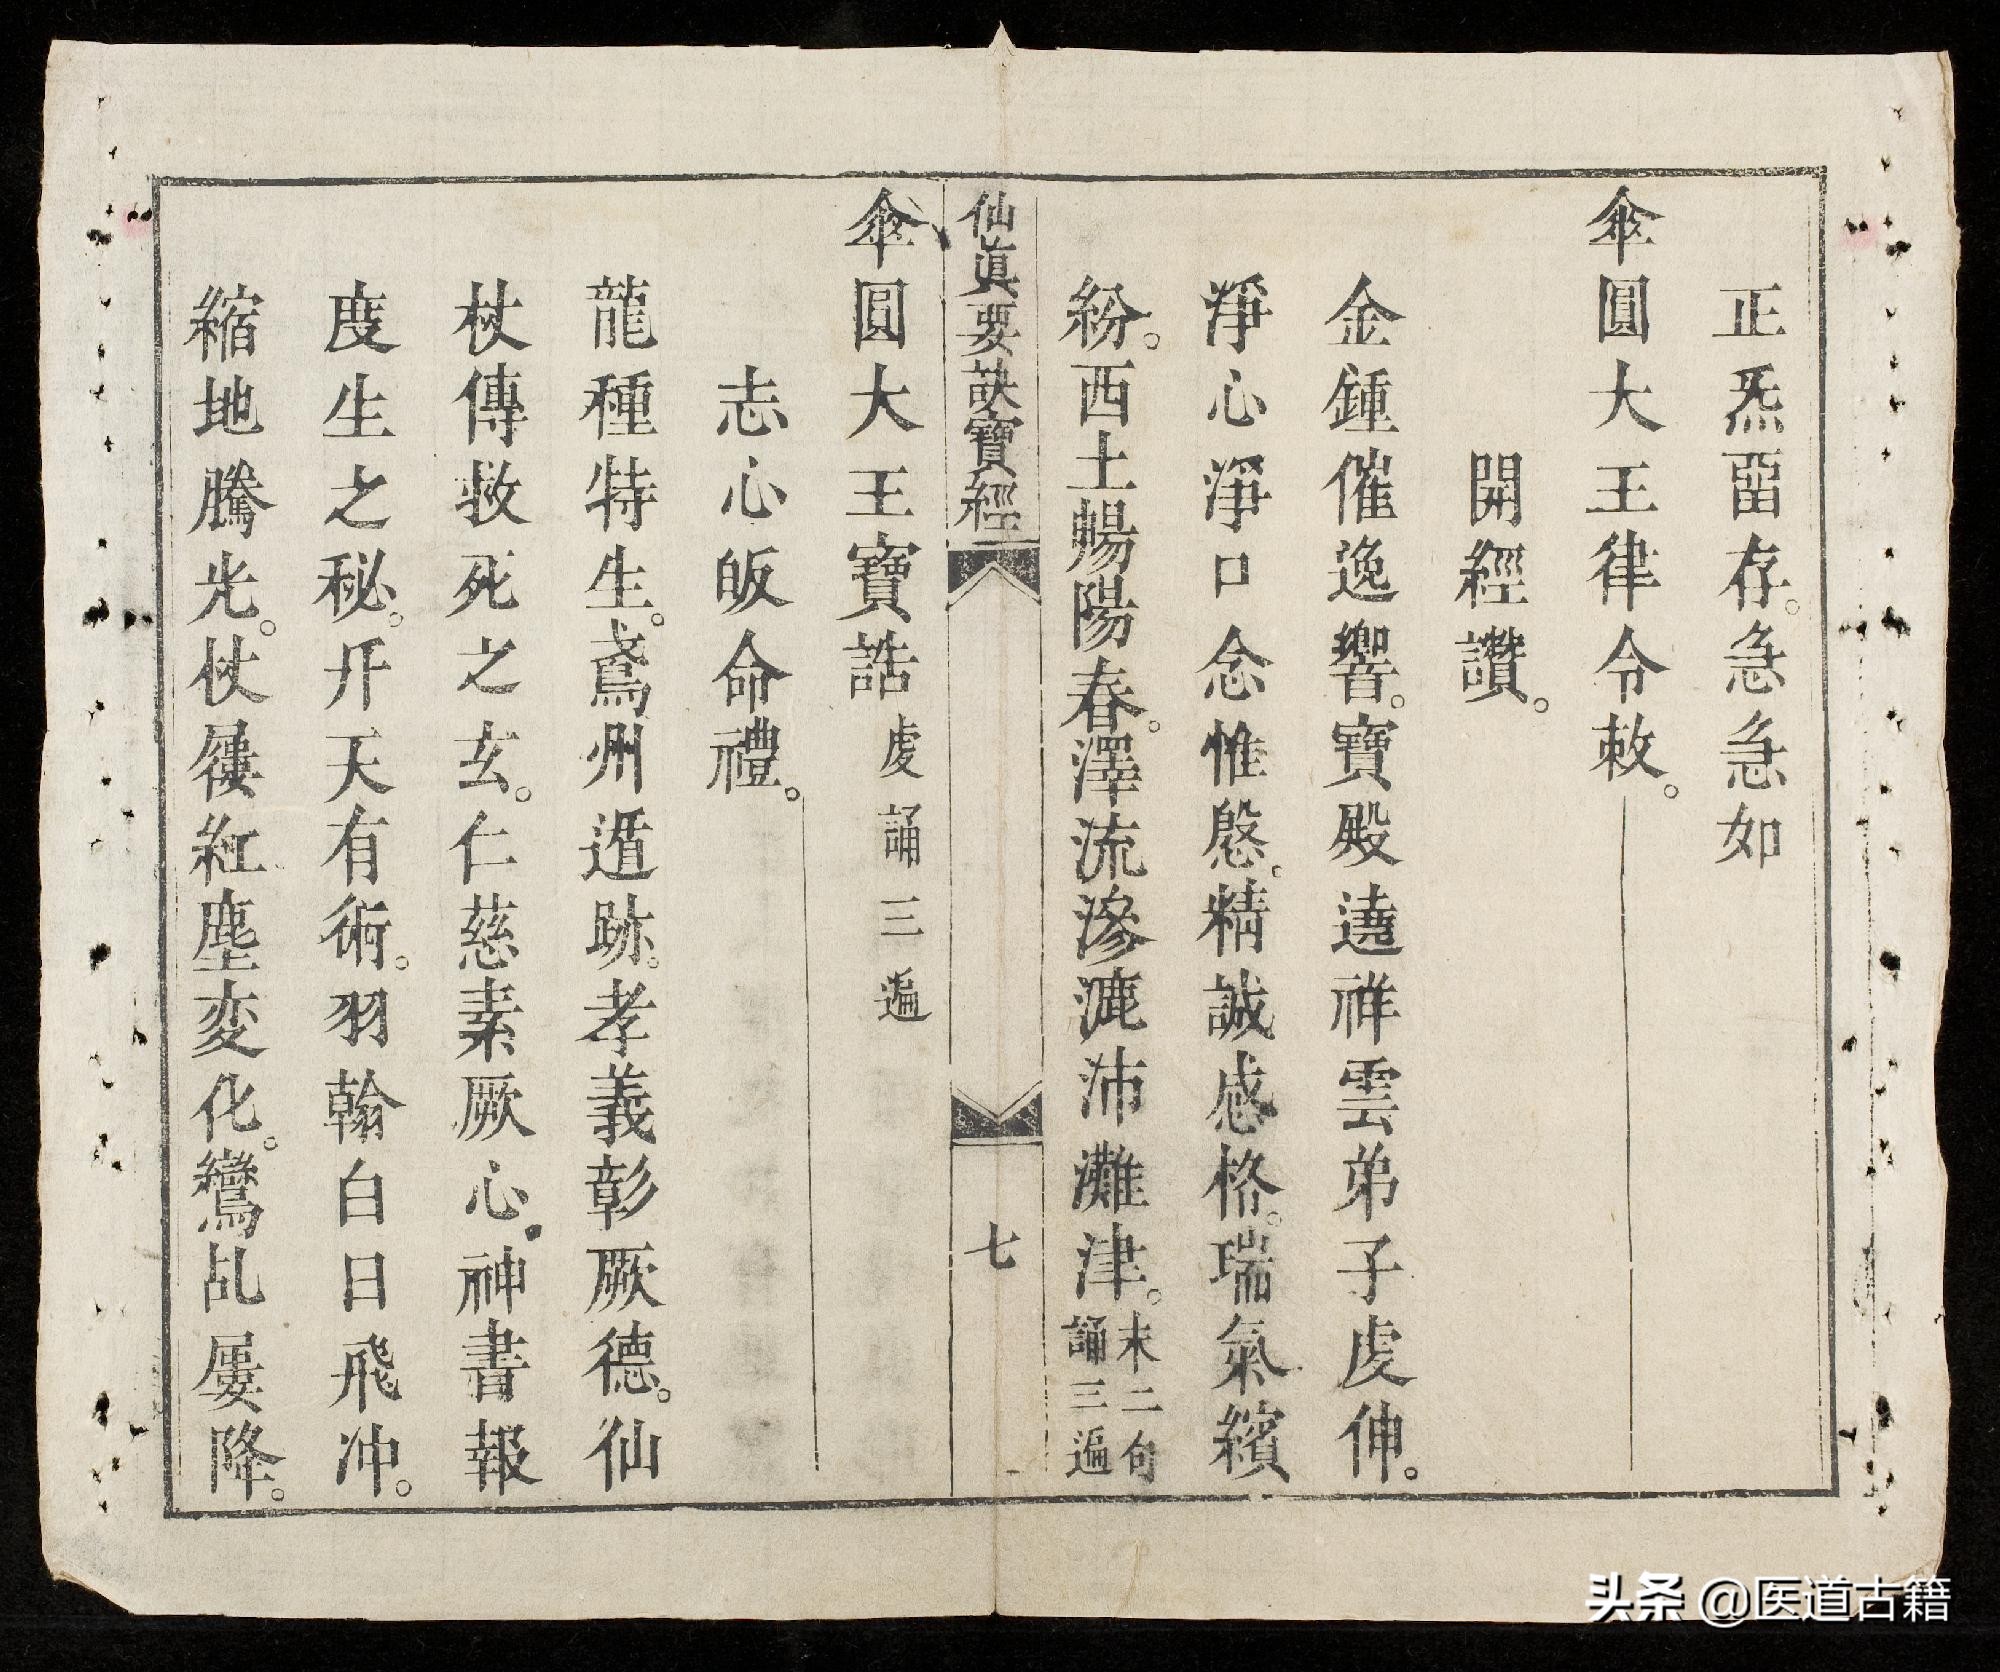 正炁畱存。急急如
傘圓大王律令敕。
開經讚。
金鍾催逸響。寶殿遶祥雲弟子虔伸。
淨心淨口念惟慇。精誠感格。瑞氣繽
紛。西土暢陽春。澤流滲漉沛灘津。末二句誦三遍
仙眞要訣寶經
七
傘圓大王寶誥虔誦三遍
志心皈命禮。
龍種特生。鳶州遁跡。孝義彰厥德。仙
杖傳救死之玄。仁慈素厥心。神書報
度生之秘。升天有術。羽翰白日飛冲。
縮地騰光。杖屨紅塵変化。鸞乩屢降。
头条 @医道古籍